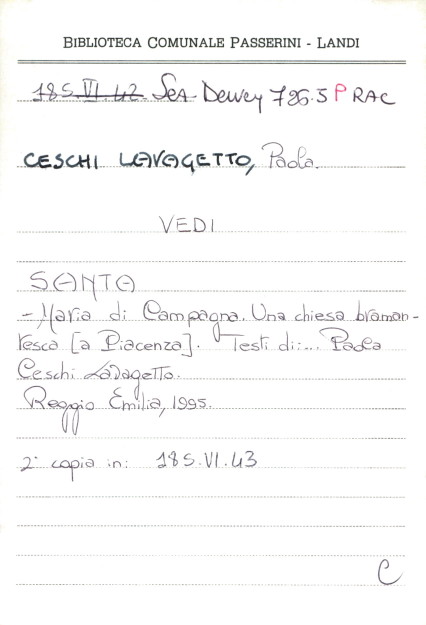 BIBLIOTECA COMUNALE PASSERINI - LANDI
18S.VI.42 SEA Dewey 726.5 P RAC
CESCHI LAVAGETTO, Paola.
VEDI
SANTA
- Maria di Campagna. Una chiesa braman-
tesca [a Piacenza]. Testi di:... Paola
Ceschi Lavagetto.
Reggio Emilia, 1995.
2ª copia in: 18S.VI.43
C